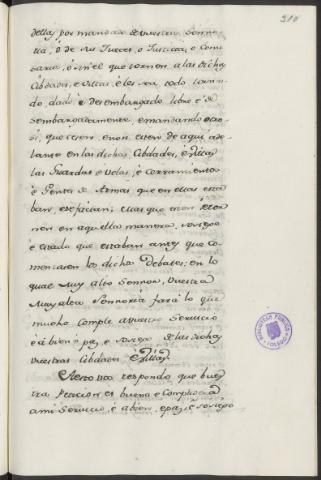 310
dellas por mandado de vuestra Senno
ria, ó de sus Jueces, o Justicias, e Comi
sarios, é en el que tornen a las dichas
Cibdades, e Villas, é les sea todo torna
do, dado, é desembargado libre é de
sembargadamente, e mandando otro
si, que cesen, e non esten de aqui ade
lante en las dichas Cibdades, é Villas
las Guardas e Velas, é corramientos
é Gentes de Armas que en ellas esta
ban, e se facian; e las que
nen en aquella manera, sosiego
é estado que estaban antes que co
menzasen los dichos Debates; en lo
qual Muy alto Sennor, Vuestra
Muy alta Sennoria fará lo que
mucho comple a vuestro Servicio
é á bien é paz, é sosiego de las dichas
vuestras Cibdades é Villas
A esto vos respondo que vues
tra Peticion es buena e complidera
a mi Servicio, é a bien, e paz, é sosiego
BIBLIOTECA
TOLEDO